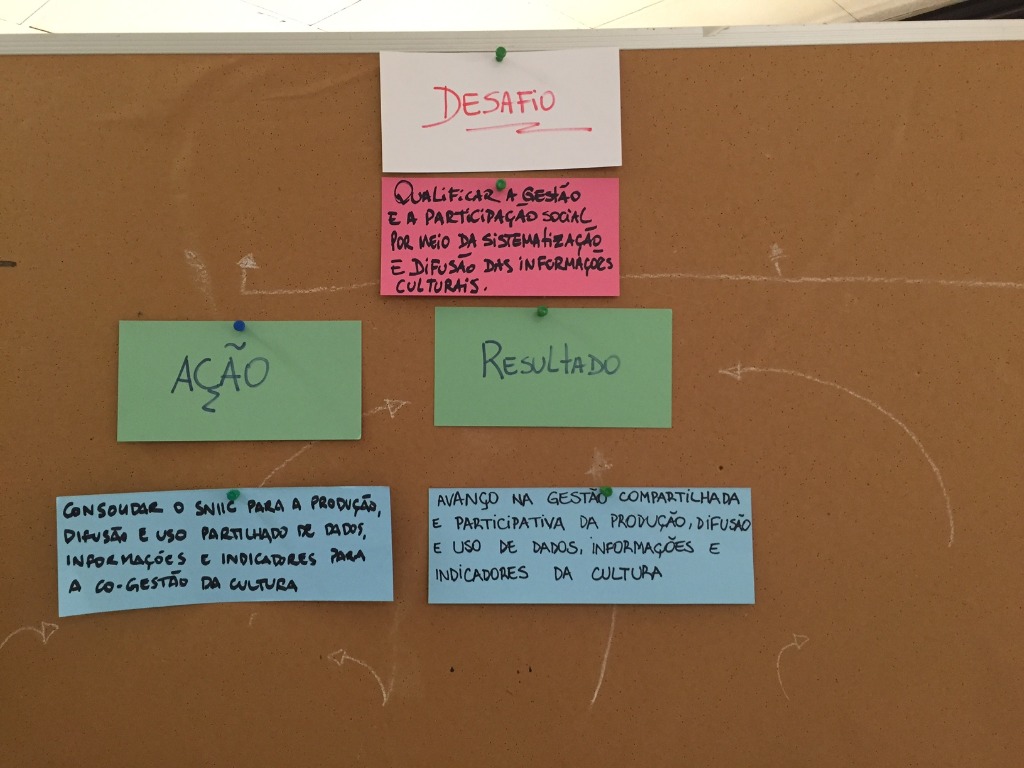 DESAFIO
QUALIFICAR A GESTÃO
E A PARTICIPAÇÃO SOCIAL
POR MEIO DA SISTEMATIZAÇÃO
E DIFUSÃO DAS INFORMAÇÕES
CULTURAIS.
AÇÃO
RESULTADO
CONSOLIDAR O SNIIC PARA A PRODUÇÃO,
DIFUSÃO E USO PARTILHADO DE DADOS,
INFORMAÇÕES E INDICADORES PARA
A CO-GESTÃO DA CULTURA
AVANÇO NA GESTÃO COMPARTILHADA
E PARTICIPATIVA DA PRODUÇÃO, DIFUSÃO
E USO DE DADOS, INFORMAÇÕES E
INDICADORES DA CULTURA